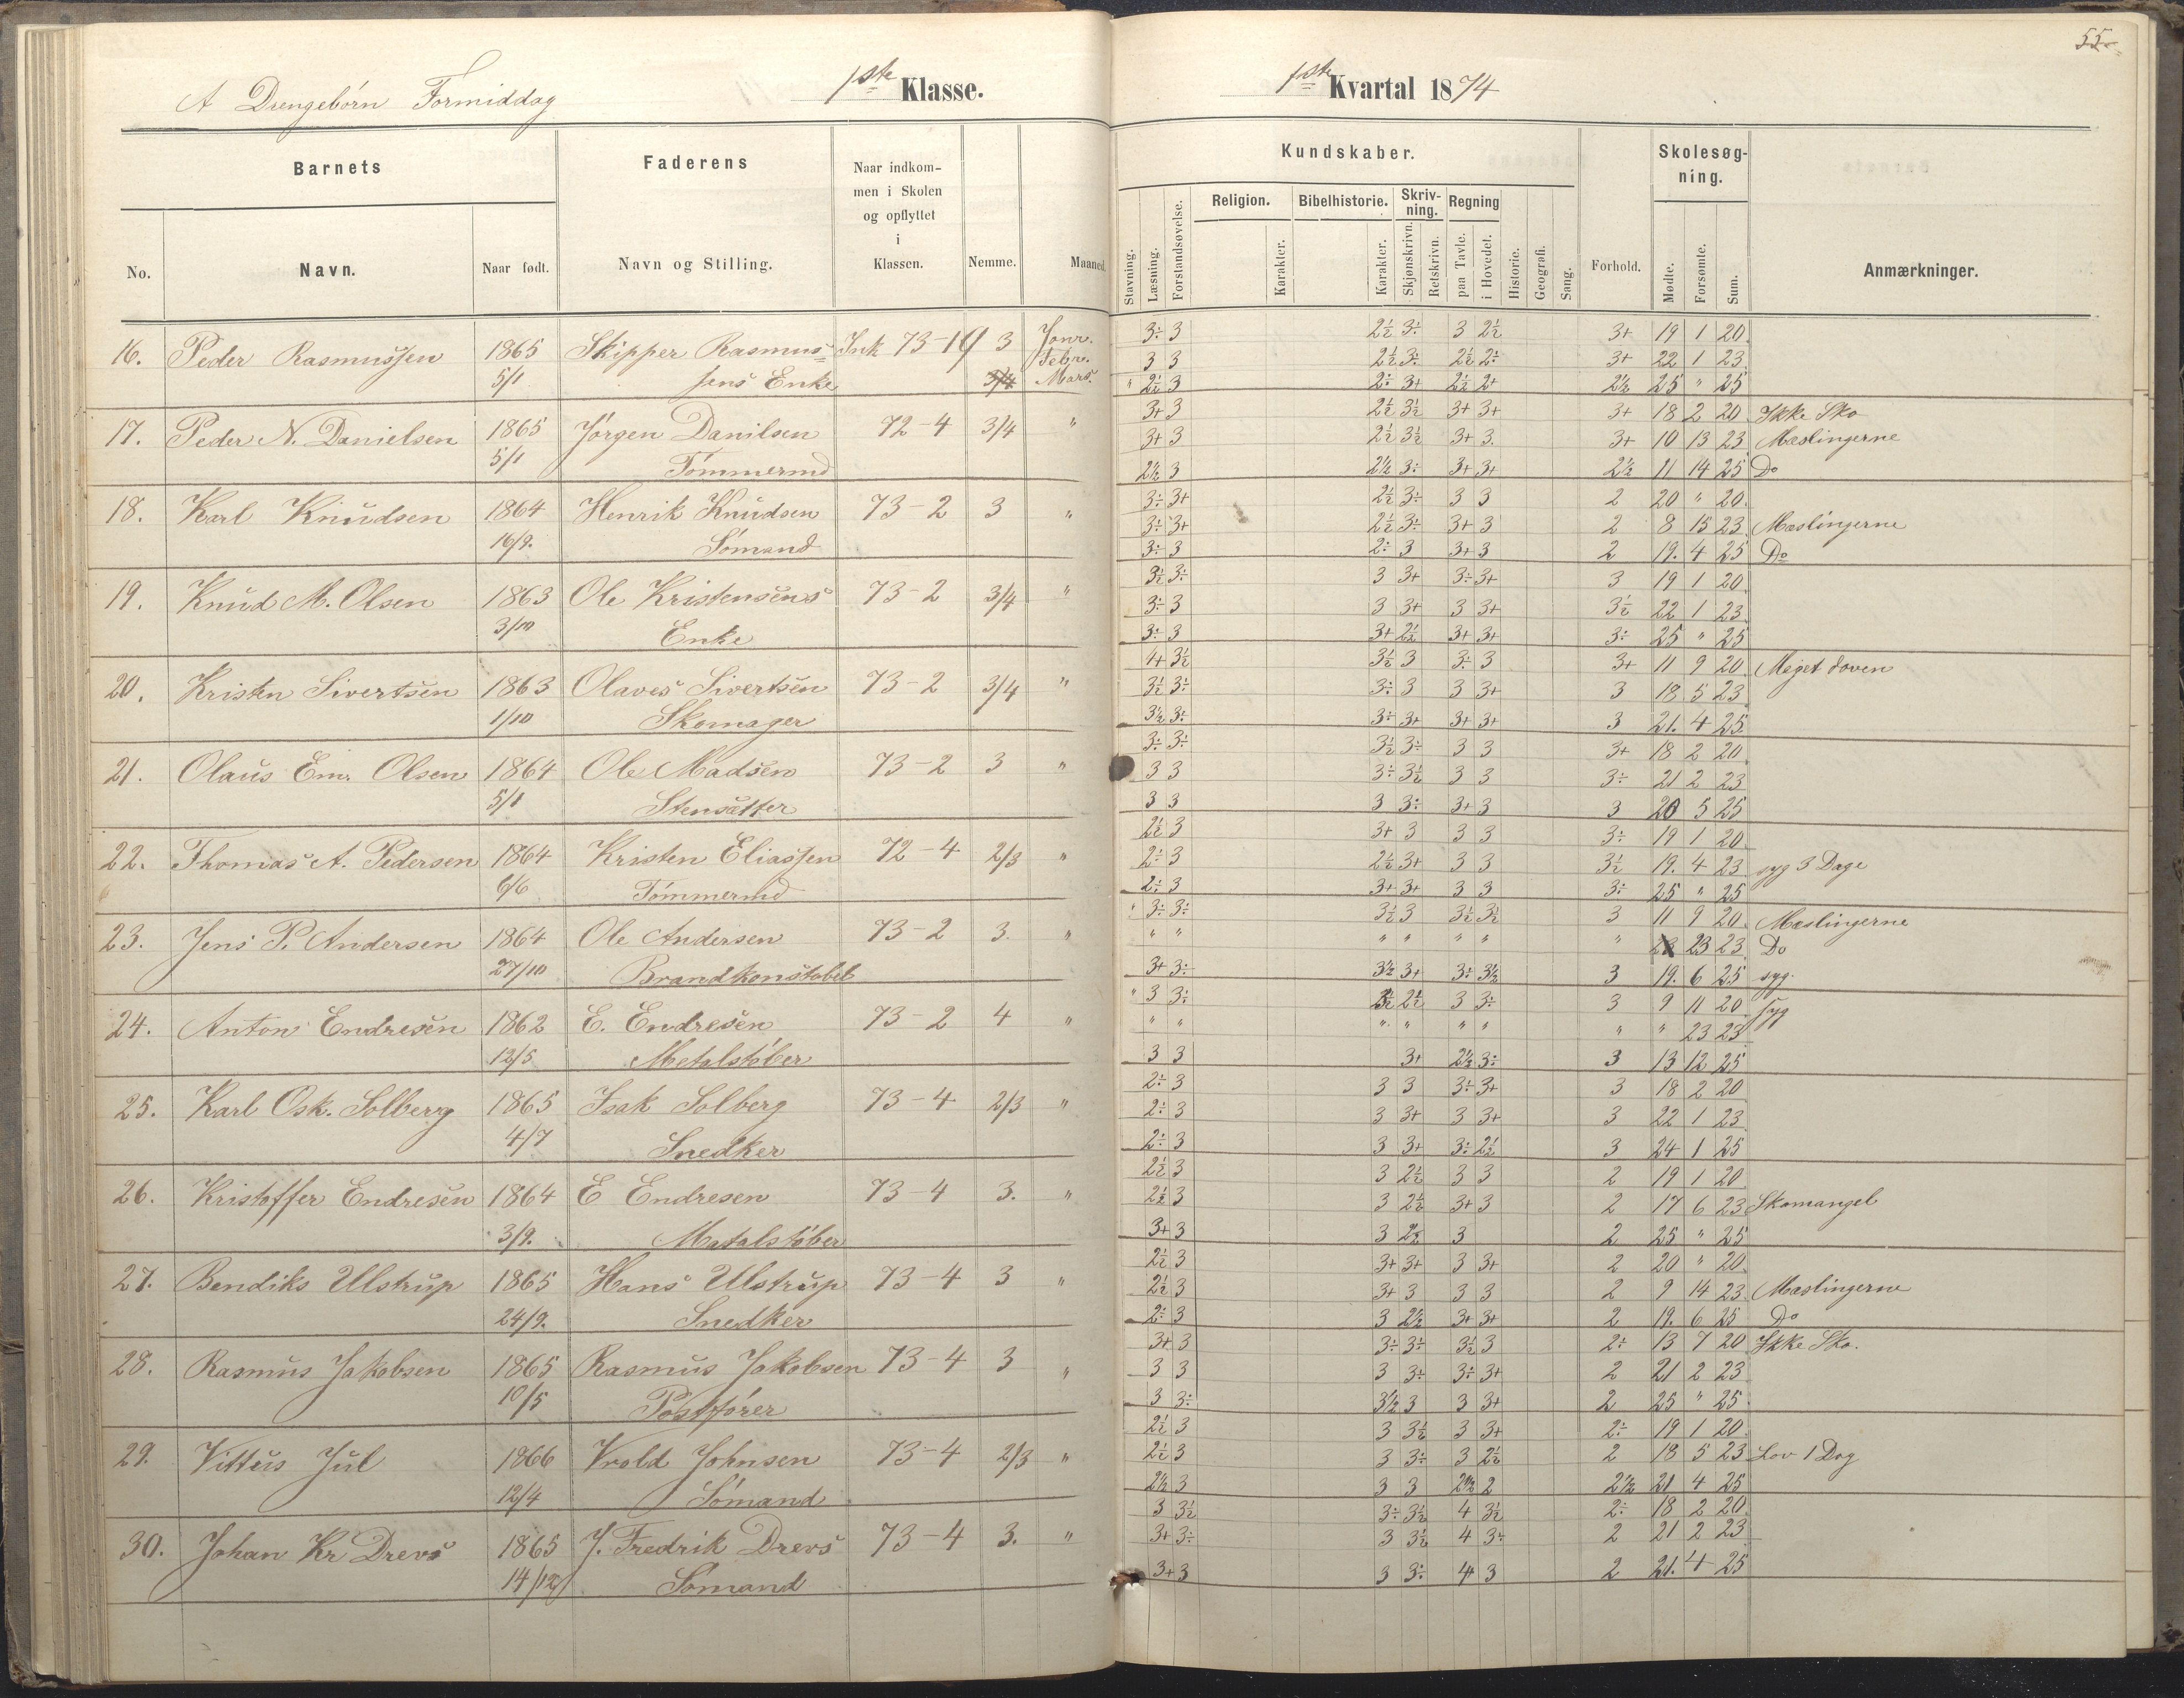 55
A Drengebörn Formiddag 1ste Klasse. 1ste Kvartal 1874
Barnets Faderens Naar indkommen i Skolen og opflyttet i Klassen. Nemme. Maaned. Kundskaber. Forhold. Skolesøgning. Anmærkninger.
No. Navn. Naar født. Navn og Stilling.
Stavning. Læsning. Forstandsøvelse. Religion. Karakter. Bibelhistorie. Karakter. Skrivning. Skjønskrivn. Retskrivn. Regning paa Tavle. i Hovedet. Historie. Geografi. Sang. Mødte. Forsømte. Sum.
16. Peder Rasmussen 1865 Skipper Rasmus= Ink 73-10 3 Janr. 3÷ 3 2½ 3÷ 3 2½ 3+ 19 1 20
Febr. 3 3 2½ 3÷ 2½ 2÷ 3+ 22 1 23
5/1 sens Enke Mars. " 2½ 3 2÷ 3+ 2½ 2+ 2½ 25 " 25
17. Peder N. Danielsen 1865 Jörgen Danilsen 72-4 3/4 " 3+ 3 2½ 3½ 3+ 3+ 3+ 18 2 20 Ikke Sko
3+ 3 2½ 3½ 3+ 3 3+ 10 13 23 Mæslingerne
5/1 Tömmermd 2½ 3 2½ 3÷ 3+ 3+ 2½ 11 14 25 Do
18. Karl Knudsen 1864 Henrik Knudsen 73-2 3 " 3÷ 3+ 2½ 3÷ 3 3 2 20 " 20
3÷ 3+ 2½ 3÷ 3+ 3 2 8 15 23 Mæslingerne
16/9. Sömand 3÷ 3 2÷ 3 3+ 3 2 19. 4 25 Do
19. Knud M. Olsen 1863 Ole Kristensens 73-2 3/4 " 3½ 3÷ 3 3+ 3÷ 3+ 3 19 1 20
3÷ 3 3 3+ 3 3+ 3½ 22 1 23
3/10 Enke 3÷ 3 3+ 2½ 3+ 3+ 3÷ 25 " 25
20. Kristen Sivertsen 1863 Olaves Sivertsen 73-2 3/4 " 4+ 3½ 3½ 3 3÷ 3 3+ 11 9 20 Meget doven
3½ 3÷ 3÷ 3 3 3+ 3 18 5 23
1/10 Skomager 3½ 3÷ 3÷ 3+ 3+ 3+ 3 21. 4 25
21. Olaus Em. Olsen 1864 Ole Madsen 73-2 3 " 3÷ 3÷ 3½ 3÷ 3 3 3+ 18 2 20
3 3 3÷ 3½ 3 3 3÷ 21 2 23
5/1 Stensætter 3 3 3 3÷ 3+ 3 3 20 5 25
22. Thomas A. Pedersen 1864 Kristen Eliassen 72-4 2/3 " 2½ 3 3+ 3 3 3 3÷ 19 1 20
2÷ 3 2½ 3+ 3 3 3½ 19. 4 23 syg 3 Dage
6/6 Tömmermd 2÷ 3 3+ 3+ 3 3 3÷ 25 " 25
23. Jens P. Andersen 1864 Ole Andersen 73-2 3. " 3÷ 3÷ 3½ 3 3½ 3½ 3 11 9 20 Mæslingerne
" " " " " " " 23 23 Do
27/10 Brandkonstabel 3+ 3÷ 3½ 3+ 3÷ 3½ 3 19. 6 25 syg.
24. Anton Endresen 1862 E. Endresen 73-2 4 " " 3 3÷ 2½ 3 3÷ 3 9 11 20 syg
" " " " " " " " 23 23
12/5 Metalstöber 3 3 3+ 2½ 3÷ 3 13 12 25
25. Karl Osk. Solberg 1865 Isak Solberg 73-4 2/3 " 2÷ 3 3 3 3÷ 3+ 3 18 2 20
2÷ 3 3 3+ 3 3+ 3 22 1 23
4/7 Snedker 2÷ 3 3 3+ 3÷ 2½ 3 24 1 25
26. Kristoffer Endresen 1864 E Endresen 73-4 3. " 2½ 3 3 2½ 3 3 2 19 1 20
2½ 3 3 2½ 3+ 3 2 17 6 23 Skomangel
3/9. Matalstöber 3+ 3 3 2½ 3 2 25 " 25
27. Bendiks Ulstrup 1865 Hans Ulstrup 73-4 3 " 2½ 3 3+ 3+ 3 3+ 2 20 " 20
2½ 3 3+ 3 3 3 2 9 14 23 Mæslingerne
24/9. Snedker 2÷ 3 3 2½ 3+ 3+ 2 19. 6 25 Do
28. Rasmus Jakobsen 1865 Rasmus Jakobsen 73-4 3 " 3+ 3 3÷ 3÷ 3½ 3 2÷ 13 7 20 Ikke Sko.
3 3 3 3÷ 3÷ 3+ 2 21 2 23
10/5 Postförer 3 3÷ 3½ 3 3 3+ 2 25 " 25
29. Vittus Jul 1866 Vrold Johnsen 73-4 2/3 " 2½ 3 3 3½ 3 3+ 2÷ 19 1 20
2½ 3 3 3÷ 3 2½ 2 18 5 23 Lov 1 Dag
12/4 Sömand 2½ 3 3 3 2½ 2 2½ 21 4 25
30. Johan Kr Drevs 1865 J. Fredrik Drevs 73-4 3. " 3 3½ 3÷ 3½ 4 3½ 2÷ 18 2 20
3+ 3÷ 3 3½ 4 3÷ 2 21 2 23
14/12 Sömand 3+ 3 3 3÷ 4 3 2 21. 4 25